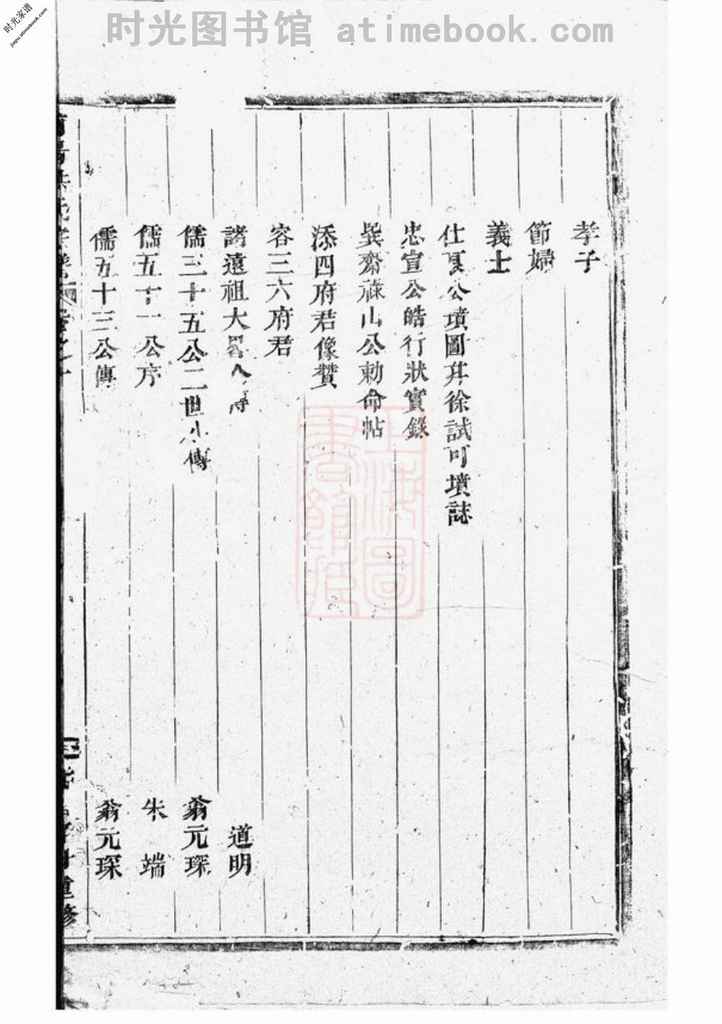 时光图书馆 atimebook.com
时光家谱
jiapu.atimebook.com
孝子
節婦
義士
仕 公墳圖并徐試可墳誌
忠宣公皓行狀實錄
巽齋祿山公勅命帖
添四府君像贊
容三六府君
諸遠祖大 道明
儒三十五公二世小傳 翁元琛
儒五十一公序 朱端
儒五十三公傳 翁元琛
重修